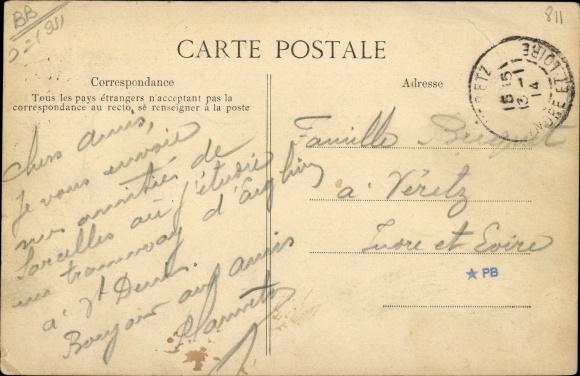 BB
811
CARTE POSTALE
Correspondance
Tous les pays étrangers n'acceptent pas la
correspondance au recto, se renseigner à la poste
Adresse
15 15
13 - 1
14
ET LOIRE
Chers amis,
Je vous envoie
mes amitiés de
Sarcelles où j'étudie
un tramway d'Enghien
à St Denis.
Bonjour aux amis
Famille
à Véretz
Indre et Loire
★ PB